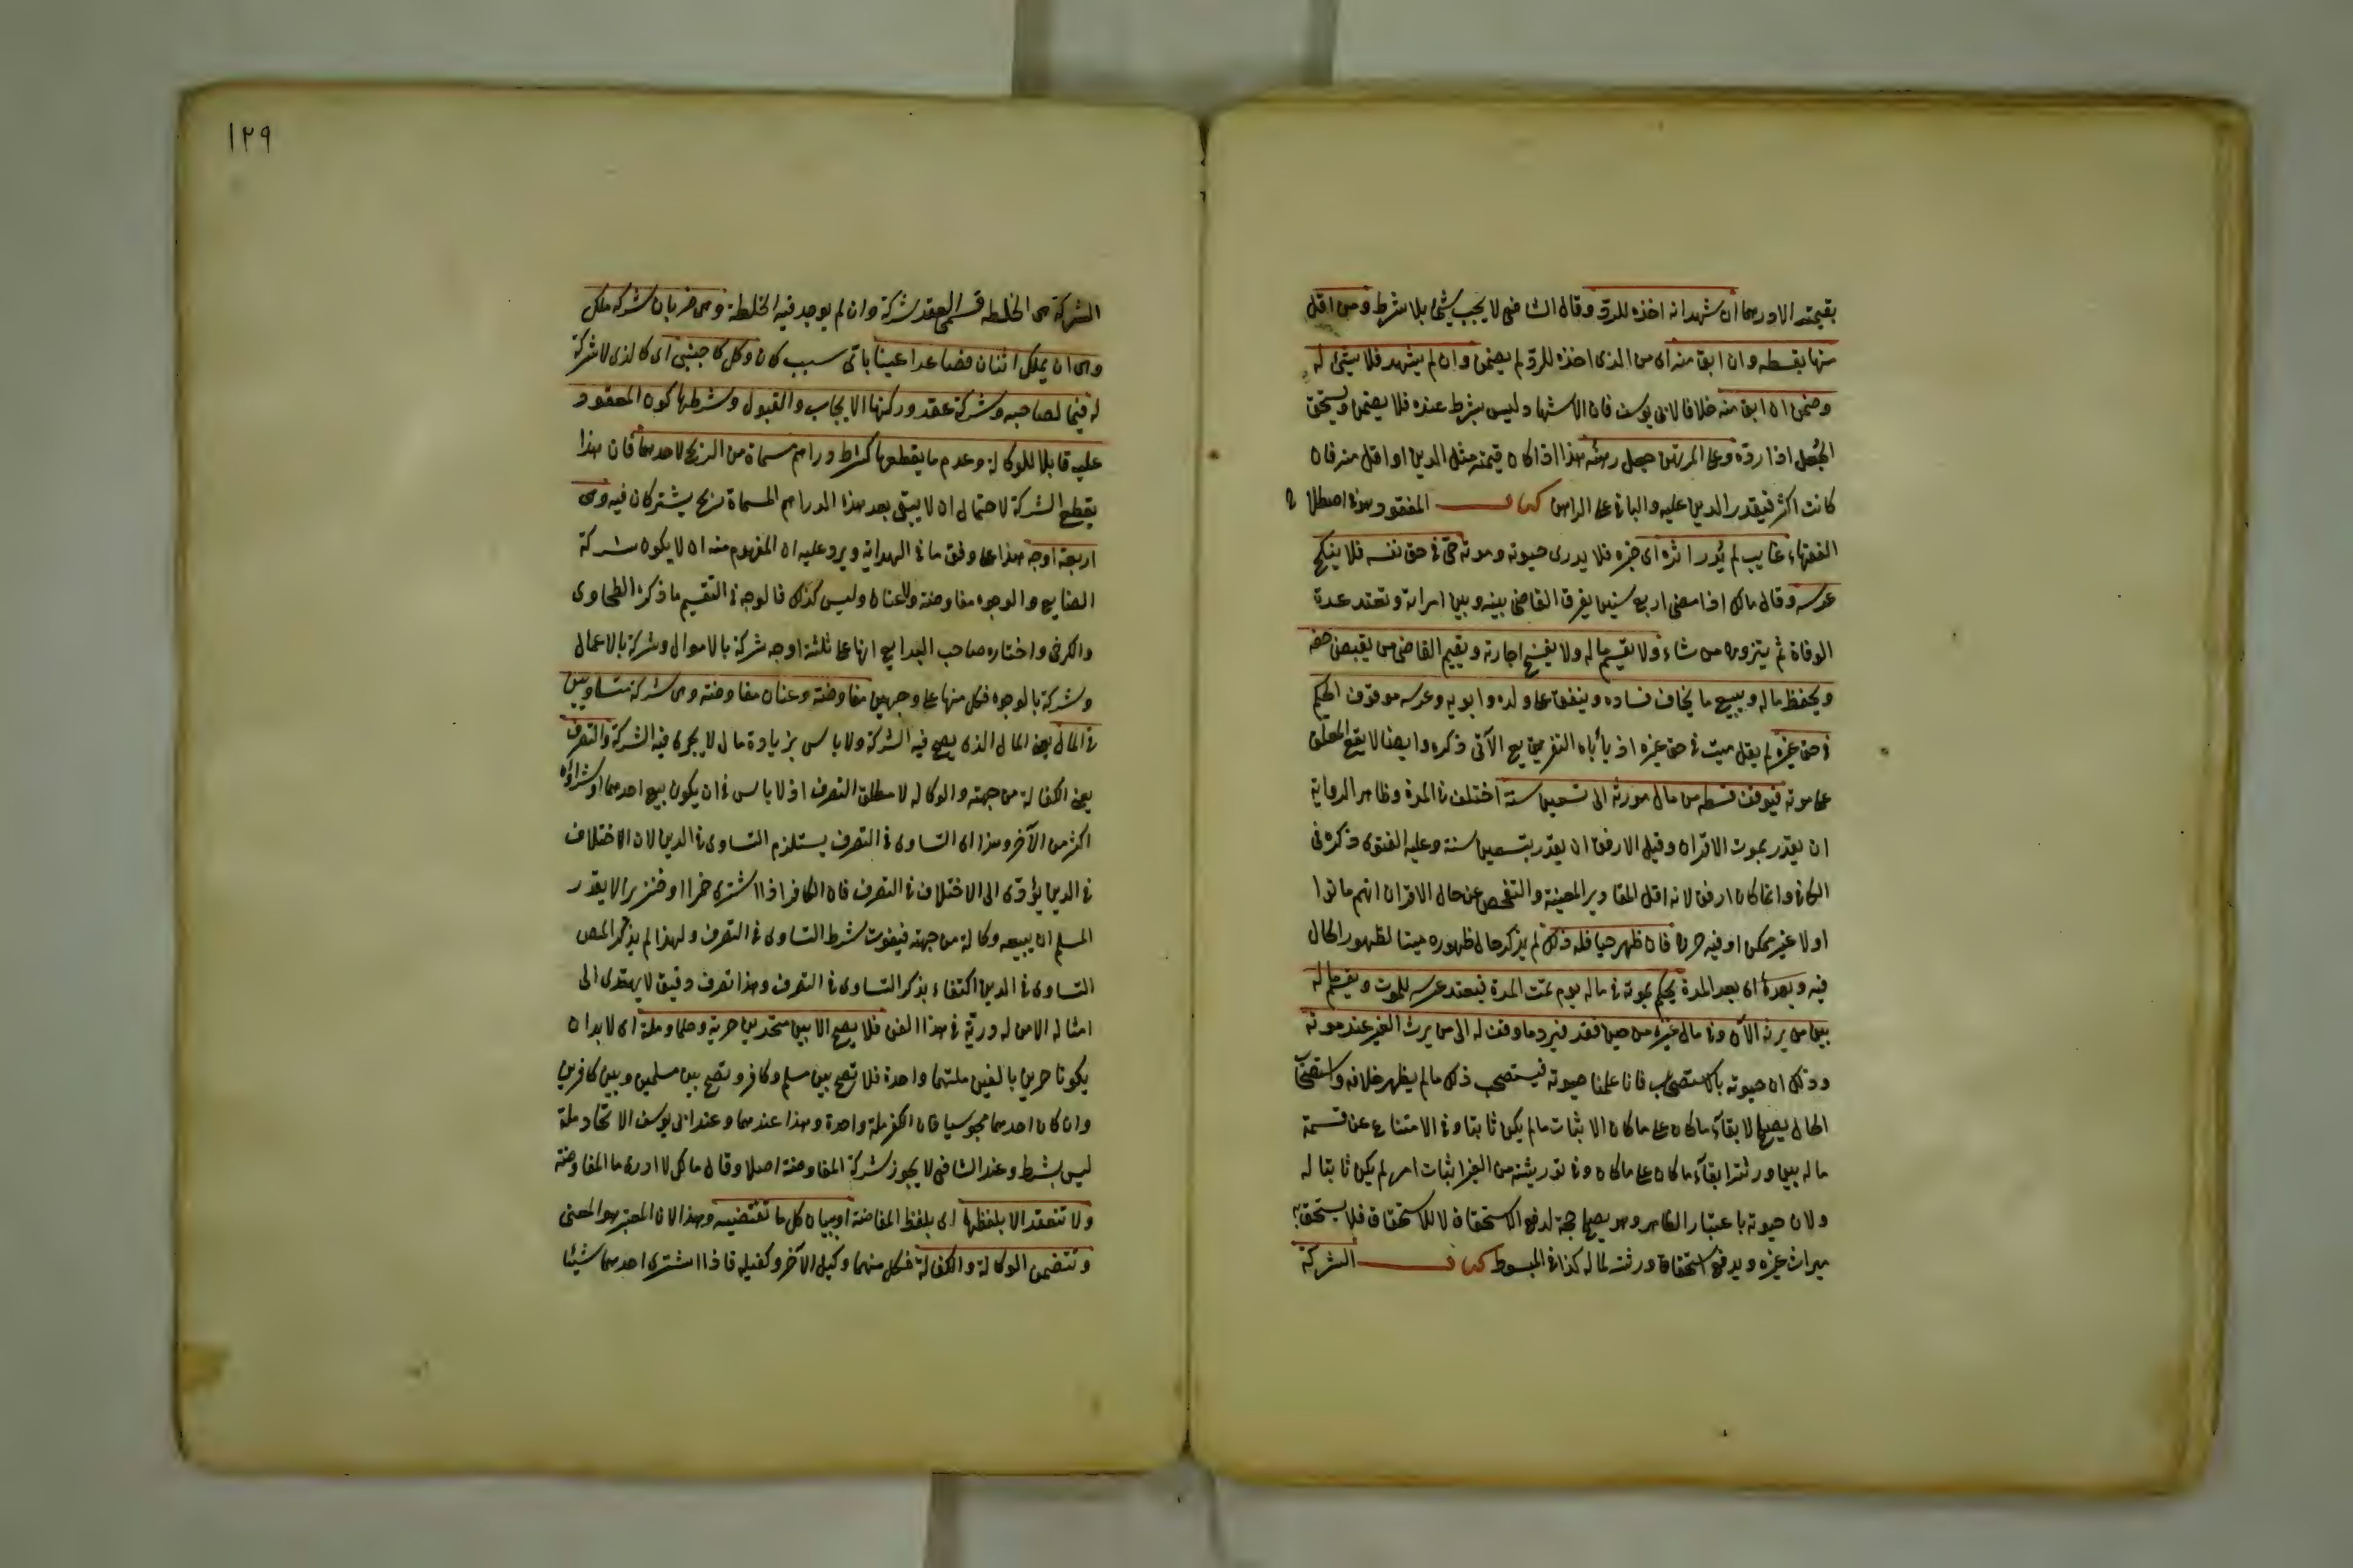 بقيمته الا درهما ان شهد انه اخذه للرد وقال الشافعي لا يجب شيئ بلا شرط ومن اقل
منها بقسطه وان ابق منه اى من الذى اخذه للرد لم يضمن وان لم يشهد فلا شيئ له
وضمن ان ابق منه خلافا لابى يوسف فان الاشهاد ليس بشرط عنده فلا يضمن ويستحق
الجُعل اذا ردّه وعلى المرتهن جعل رهنه هذا اذا كان قيمته مثل الدين او اقل منه فان
كانت اكثر فيقدر الدين عليه والباقى على الراهن كتاب المفقود هو فى اصطلاح
الفقهاء غايب لم يُدر اثره اى خبره فلا يدرى حيوته وموته حىّ فى حق نفسه فلا ينكح
عرسه وقال مالك اذا مضى اربع سنين يفرق القاضى بينه وبين امراته وتعتد عدة
الوفاة ثم يتزوج من شاء ولا يقسم ماله ولا يفسخ اجارته ويقيم القاضى من يقبض حقه
ويحفظ ماله ويبيع ما يخاف فساده وينفق على ولده وابويه وعرسه موقوف الحكم
فى حق غيره لم يقل ميت فى حق غيره اذ يأباه التفريع الآتى ذكره وايضا لا يقع المعلّق
على موته فيوقف قسطه من مال مورثه الى تسعين سنة اختلف فى المدة وظاهر الرواية
ان يقدّر بموت الاقران وقيل الارفق ان يقدّر بتسعين سنة وعليه الفتوى ذكره فى
الكافى وانما كان ارفق لانه اقل المقادير المعينة والتفحص عن حال الاقران انهم ماتوا
اولا غير ممكن او فيه حرج فان ظهر حيا فله ذلك لم يذكر حال ظهوره ميتا لظهور الحال
فيه وبعدها اى بعد المدة يحكم بموته فى ماله يوم تمت المدة فتعتد عرسه للموت ويقسم ماله
بين من يرثه الآن وفى مال غيره من حين فقد فيرد ما وقف له الى من يرث الغير عند موته
وذلك ان حيوته بالاستصحاب فانا علمنا حيوته فيستصحب ذلك ما لم يظهر خلافه واستصحاب
الحال يصلح لابقاء ما كان على ما كان لا لاثبات ما لم يكن ثابتا وفى الامتناع عن قسمة
ماله بين ورثته ابقاء ما كان على ما كان وفى توريثه من الغير اثبات امر لم يكن ثابتا له
ولان حيوته باعتبار الظاهر وهو يصلح حجة لدفع الاستحقاق لا للاستحقاق فلا يستحق به
ميراث غيره ويدفع استحقاق ورثته لماله كذا فى المبسوط كتاب الشركة
١٢٩
الشركة هى الخلطة فسمى العقد شركة وان لم يوجد فيه الخلطة وهى ضربان شركة ملك
وهى ان يملك اثنان فصاعدا عينا باىّ سبب كان وكل كاجنبى اى كالذى لا شركة
له فيما لصاحبه وشركة عقد وركنها الايجاب والقبول وشرطها كون المعقود
عليه قابلا للوكالة وعدم ما يقطعها كشرط دراهم مسماة من الربح لاحدهما فان هذا
يقطع الشركة لاحتمال ان لا يبقى بعد هذا الدراهم المسماة ربح يشتركان فيه وهى
اربعة اوجه هذا على وفق ما فى الهداية ويرد عليه ان المفهوم منه ان لا يكون شركة
الصنايع والوجوه مفاوضة ولا عنان وليس كذلك فالوجه فى التقسيم ما ذكره الطحاوى
والكرخى واختاره صاحب البدايع انها على ثلثة اوجه شركة بالاموال وشركة بالاعمال
وشركة بالوجوه فكل منها على وجهين مفاوضة وعنان مفاوضة وهى شركة متساويين
فى المال يعنى المال الذى يصح فيه الشركة ولا باس بزيادة مال لا يجرى فيه الشركة والتصرف
يعنى الكفالة من جهته والوكالة لا مطلق التصرف اذ لا باس فى ان يكون بيع احدهما او شراؤه
اكثر من الآخر وهذا اى التساوى فى التصرف يستلزم التساوى فى الدين لان الاختلاف
فى الدين يؤدّى الى الاختلاف فى التصرف فان الكافر اذا اشترى خمرا او خنزيرا لا يقدر
المسلم ان يبيعه وكالة من جهته فيفوت شرط التساوى فى التصرف ولهذا لم يذكر المص
التساوى فى الدين اكتفاء بذكر التساوى فى التصرف وهذا تصرف دقيق لا يهتدى الى
امثاله الا من له دريّة فى هذا الفن فلا يصح الا بين متحدين حرية وحلما وملة اى لا بد ان
يكونا حرين بالغين ملتهما واحدة فلا تصح بين مسلم وكافر وتصح بين مسلمين وبين كافرين
وان كان احدهما مجوسيا فان الكفر ملة واحدة وهذا عندهما وعند ابى يوسف الاتحاد ملة
ليس بشرط وعند الشافعى لا يجوز شركة المفاوضة اصلا وقال مالك لا ادرى ما المفاوضة
ولا تنعقد الا بلفظها اى بلفظ المفاوضة او ببيان كل ما تقتضيه وهذا لان المعتبر هو المعنى
وتتضمن الوكالة والكفالة فكل منهما وكيل الآخر وكفيله فاذا اشترى احدهما شيئا